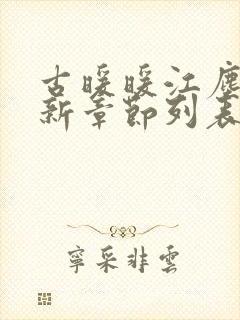 古暖暖江塵
新章節列表
寧采非雲